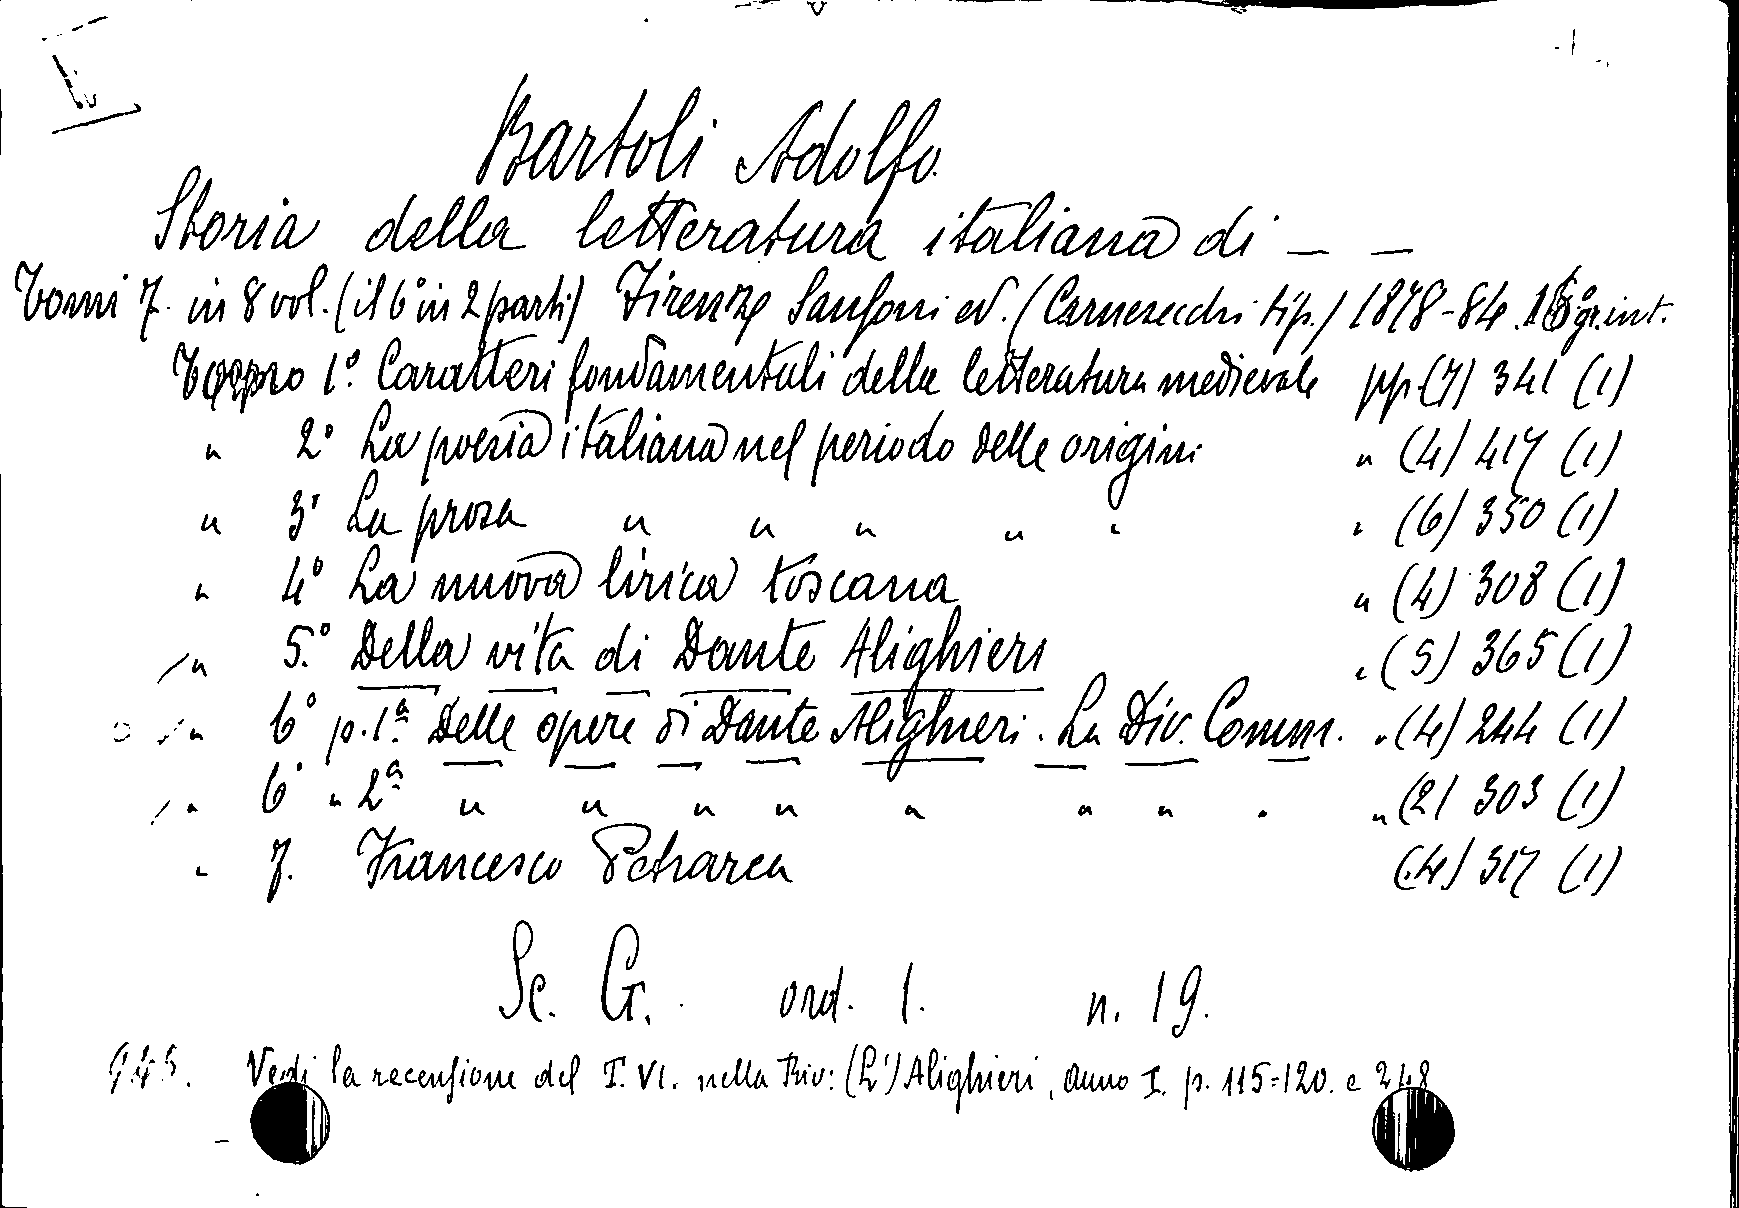 Bartoli Adolfo.
Storia della letteratura italiana di — —
Tomi 7. in 8 vol. (il 6° in 2 parti) Firenze Sansoni ed. (Carnesecchi tip.) 1878-84. 16° gr. int.
Tomo 1°. Caratteri fondamentali della letteratura medievale pp. (7) 341 (1)
" 2° La poesia italiana nel periodo delle origini " (4) 417 (1)
" 3° La prosa " " " " " " (6) 350 (1)
" 4° La nuova lirica toscana " (4) 308 (1)
" 5.° Della vita di Dante Alighieri " (5) 365 (1)
" 6° p. 1ª Delle opere di Dante Alighieri. La Div. Comm. " (4) 244 (1)
" 6° " 2ª " " " " " " " " " (2) 303 (1)
" 7. Francesco Petrarca (4) 317 (1)
Sc. G. ord. 1. n. 19.
Vedi la recensione del T. VI. nella Riv: (L') Alighieri, anno I. p. 115=120. e 248